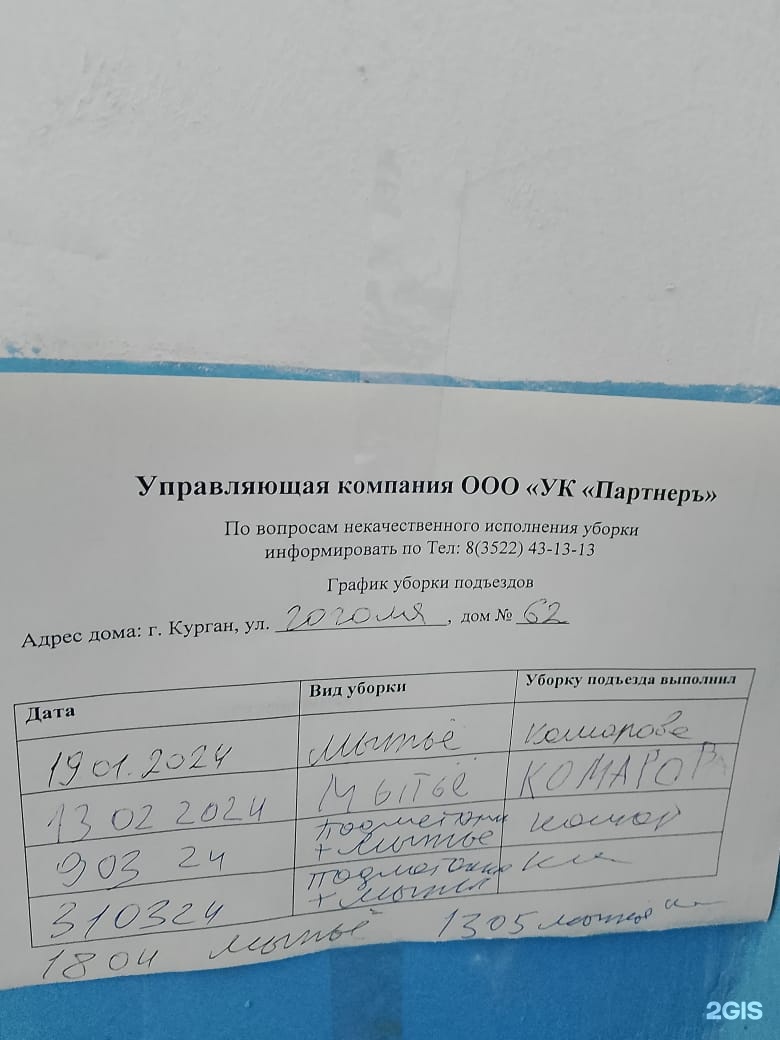 Управляющая компания ООО «УК «Партнеръ»
По вопросам некачественного исполнения уборки
информировать по Тел: 8(3522) 43-13-13
График уборки подъездов
Адрес дома: г. Курган, ул. гоголя, дом № 62
Дата Вид уборки Уборку подъезда выполнил
19 01.2024 мытьё комарова
13 02 2024 Мытьё КОМАРОВА
9 03 24 подметание + мытьё комар
31 03 24 подметание + мытьё
18 04 мытьё 13 05 мытьё
2GIS